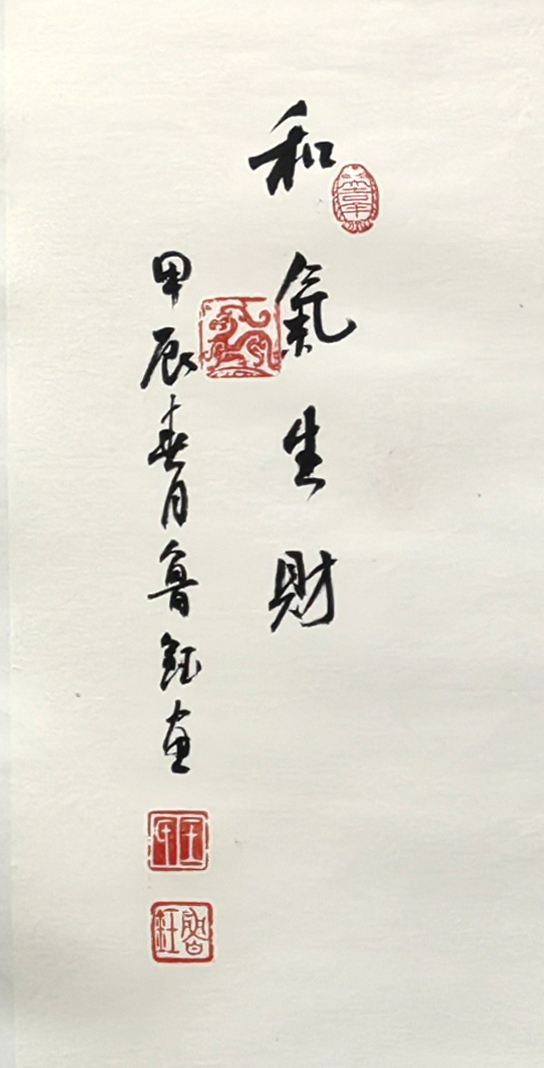 和氣生財
甲辰春月魯鈺画